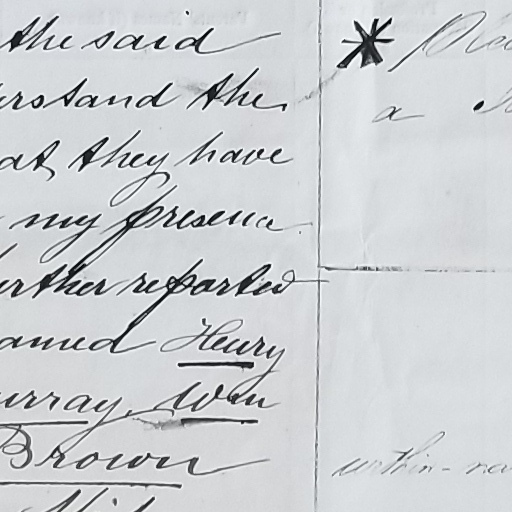 the said
erstand the
at they have
my presence
urther reported
amed Henry
urray, Wm
Brown
a
within-na